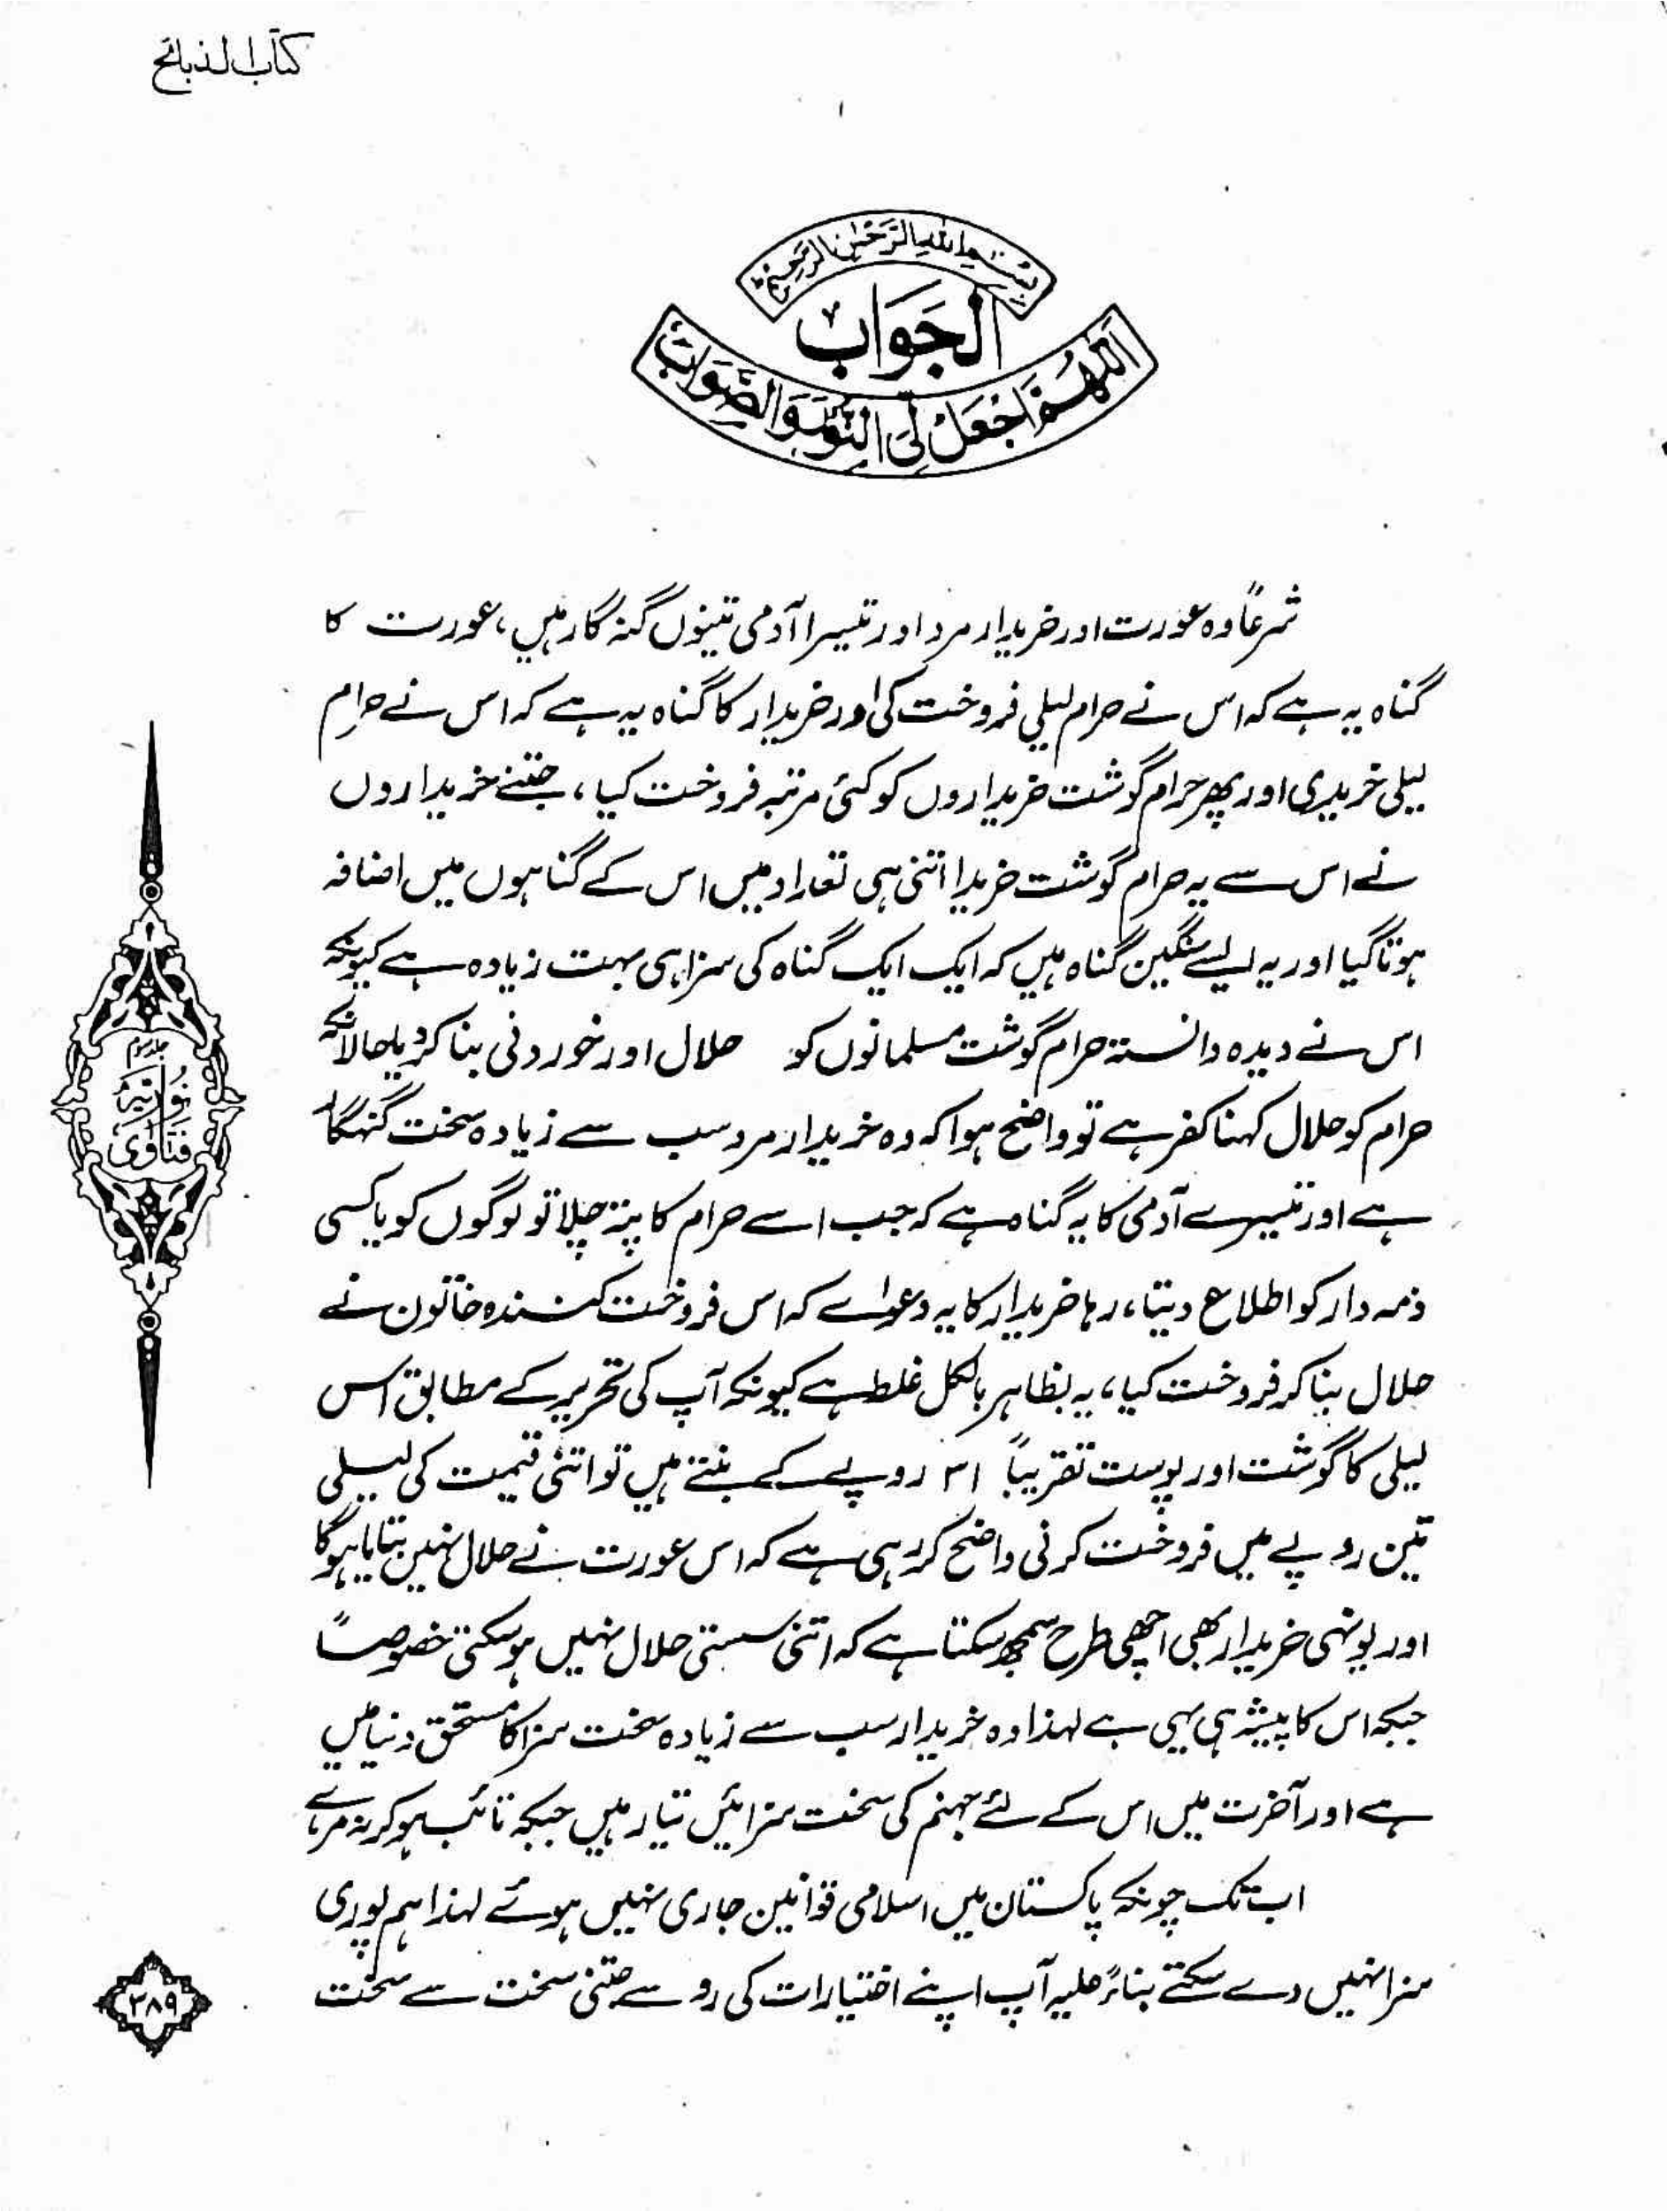 کتاب الذبائح
بسم اللہ الرحمٰن الرحیم
الجَوَابُ
اَللّٰھُمَّ اجْعَلْ لِّیَ النُّوْرَ وَالصَّوَابَ
شرعاً وہ عورت اور خریدار مرد اور تیسرا آدمی تینوں گنہ گار ہیں، عورت کا
گناہ یہ ہے کہ اس نے حرام لیلی فروخت کی اور خریدار کا گناہ یہ ہے کہ اس نے حرام
لیلی خریدی اور پھر حرام گوشت خریداروں کو کئی مرتبہ فروخت کیا، جتنے خریداروں
نے اس سے یہ حرام گوشت خریدا اتنی ہی تعداد میں اس کے گناہوں میں اضافہ
ہوتا گیا اور یہ ایسے سنگین گناہ ہیں کہ ایک ایک گناہ کی سزا ہی بہت زیادہ ہے کیونکہ
اس نے دیدہ دانستہ حرام گوشت مسلمانوں کو حلال اور خوردنی بنا کر دیا حالانکہ
حرام کو حلال کہنا کفر ہے تو واضح ہوا کہ وہ خریدار مرد سب سے زیادہ سخت گنہگار
ہے اور تیسرے آدمی کا یہ گناہ ہے کہ جب اسے حرام کا پتہ چلا تو لوگوں کو یا کسی
ذمہ دار کو اطلاع دیتا، رہا خریدار کا یہ دعوےٰ کہ اس فروخت کنندہ خاتون نے
حلال بنا کر فروخت کیا، یہ بظاہر بالکل غلط ہے کیونکہ آپ کی تحریر کے مطابق اس
لیلی کا گوشت اور پوست تقریباً ۳۱ روپے کے بنتے ہیں تو اتنی قیمت کی لیلی
تین روپے میں فروخت کرنی واضح کر رہی ہے کہ اس عورت نے حلال نہیں بتایا ہو گا
اور یونہی خریدار بھی اچھی طرح سمجھ سکتا ہے کہ اتنی سستی حلال نہیں ہو سکتی خصوصاً
جبکہ اس کا پیشہ ہی یہی ہے لہذا وہ خریدار سب سے زیادہ سخت سزا کا مستحق دنیا میں
ہے اور آخرت میں اس کے لئے جہنم کی سخت سزائیں تیار ہیں جبکہ تائب ہو کر نہ مرے
اب تک چونکہ پاکستان میں اسلامی قوانین جاری نہیں ہوئے لہذا ہم پوری
سزا نہیں دے سکتے بناءً علیہ آپ اپنے اختیارات کی رو سے جتنی سخت سے سخت
جلد سوم
نُوریَّہ
فتاویٰ
۳۸۹